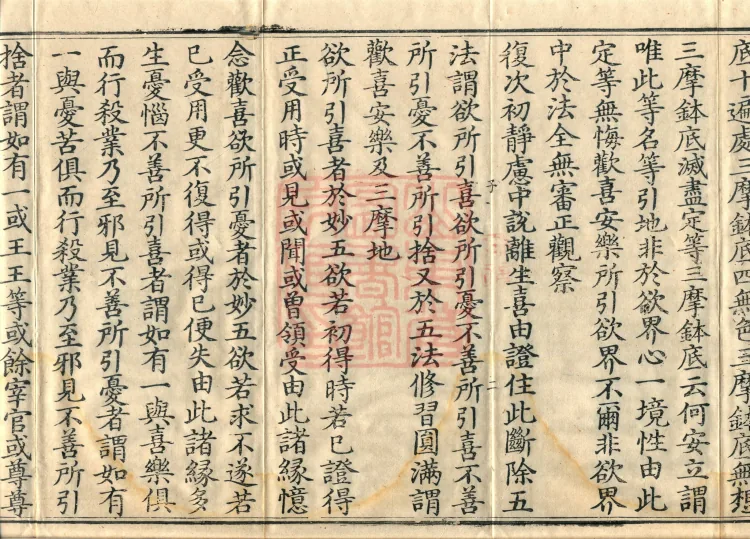 底十遍處三摩鉢底四無色三摩鉢底無想
三摩鉢底滅盡定等三摩鉢底云何安立謂
唯此等名等引地非於欲界心一境性由此
定等無悔歡喜安樂所引欲界不爾非欲界
中於法全無審正觀察
復次初靜慮中說離生喜由證住此斷除五
法謂欲所引喜欲所引憂不善所引喜不善
所引憂不善所引捨又於五法修習圓滿謂
歡喜安樂及三摩地
欲所引喜者於妙五欲若初得時若已證得
正受用時或見或聞或曾領受由此諸緣憶
念歡喜欲所引憂者於妙五欲若求不遂若
已受用更不復得或得已便失由此諸緣多
生憂惱不善所引喜者謂如有一與喜樂俱
而行殺業乃至邪見不善所引憂者謂如有
一與憂苦俱而行殺業乃至邪見不善所引
捨者謂如有一或王王等或餘宰官或尊尊
子
二